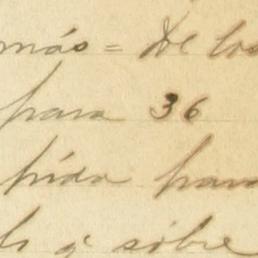 más = De los
para 36
pida para
q sobre